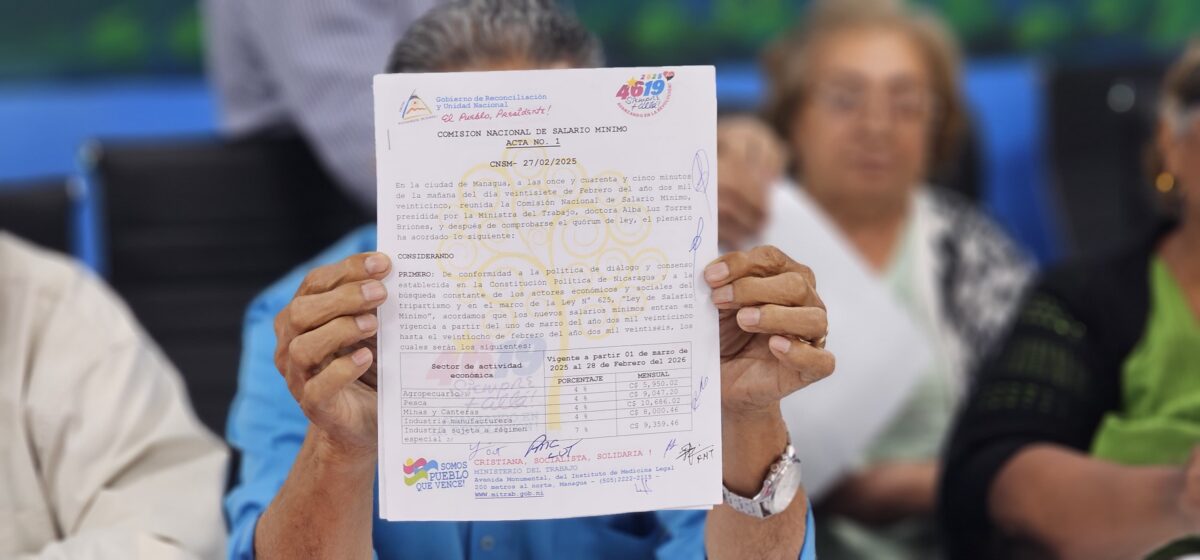 Gobierno de Reconciliación
y Unidad Nacional
El Pueblo, Presidente!
2025
4619
Siempre
+ allá!
COMISION NACIONAL DE SALARIO MINIMO
ACTA NO. 1
CNSM- 27/02/2025
En la ciudad de Managua, a las once y cuarenta y cinco minutos
de la mañana del día veintisiete de Febrero del año dos mil
veinticinco, reunida la Comisión Nacional de Salario Mínimo,
presidida por la Ministra del Trabajo, doctora Alba Luz Torres
Briones, y después de comprobarse el quórum de ley, el plenario
ha acordado lo siguiente:
CONSIDERANDO
PRIMERO: De conformidad a la política de diálogo y consenso
establecida en la Constitución Política de Nicaragua y a la
búsqueda constante de los actores económicos y sociales del
tripartismo y en el marco de la Ley N° 625, "Ley de Salario
Mínimo", acordamos que los nuevos salarios mínimos entran en
vigencia a partir del uno de marzo del año dos mil veinticinco
hasta el veintiocho de febrero del año dos mil veintiséis, los
cuales serán los siguientes:
Sector de actividad económica
Vigente a partir 01 de marzo de 2025 al 28 de Febrero del 2026
PORCENTAJE MENSUAL
Agropecuario 4 % C$ 5,950.02
Pesca 4 %
Minas y Canteras 4 % C$ 10,686.02
Industria manufacturera 4 % C$ 8,000.46
Industria sujeta a régimen especial 7 % C$ 9,359.46
CRISTIANA, SOCIALISTA, SOLIDARIA !
MINISTERIO DEL TRABAJO
Avenida Monumental, del Instituto de Medicina Legal
200 metros al norte. Managua - (505)2222-
www.mitrab.gob.ni
SOMOS
PUEBLO
QUE VENCE!